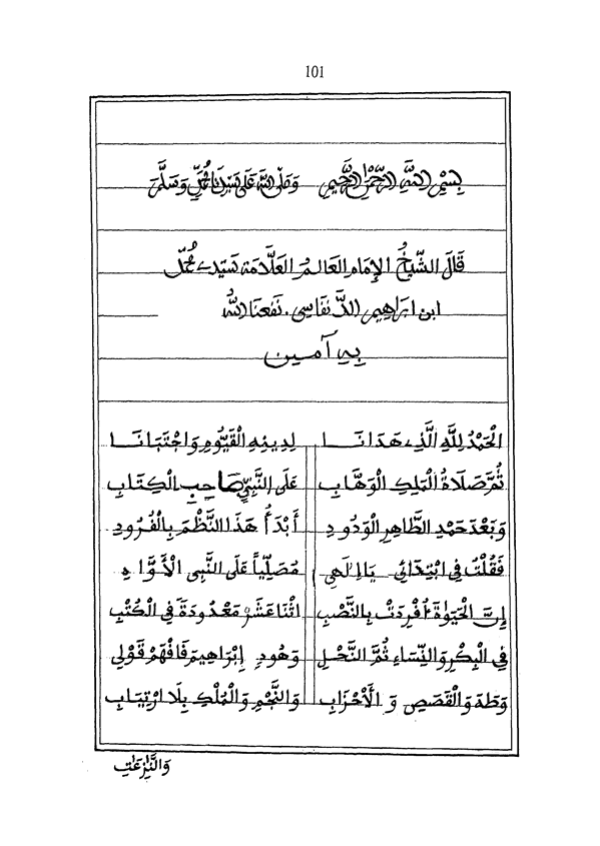 101
بِسْمِ اللَّهِ الرَّحْمَنِ الرَّحِيمِ وَصَلَّى اللَّهُ عَلَى سَيِّدِنَا مُحَمَّدٍ وَسَلَّمَ
قَالَ الشَّيْخُ الإِمَامُ العَالِمُ العَلَّامَة سَيِّدِي مُحَمَّد
ابن ابراهيم الدنفاسي. نَفَعنَا اللهُ
بِهِ آمين
الْحَمْدُ لِلَّهِ الَّذِي هَدَانَا لِدِينِهِ الْقَيُّومِ وَاجْتَبَانَا
ثُمَّ صَلَاةُ الْمَلِكِ الْوَهَّابِ عَلَى النَّبِيِّ صَاحِبِ الْكِتَابِ
وَبَعْدَ حَمْدِ الطَّاهِرِ الْوَدُودِ أَبْدَأُ هَذَا النَّظْمَ بِالْفُرُودِ
فَقُلْتُ فِي ابْتِدَائِي يَا إِلَهِي مُصَلِّياً عَلَى النَّبِي الْأَوَّاهِ
إِنَّ الْحَيَوٰةَ أُفْرِدَتْ بِالنَّصْبِ اثْنَا عَشَرْ مَعْدُودَةً فِي الْكُتْبِ
فِي الْبِكْرِ وَالنِّسَاءِ ثُمَّ النَّحْلِ وَهُودِ إِبْرَاهِيمَ فَافْهَمْ قَوْلِي
وَطَهَ وَالْقَصَصِ وَ الْأَحْزَابِ وَالنَّجْمِ وَالْمُلْكِ بِلَا ارْتِيَابِ
وَالنَّٰزِعَٰتِ